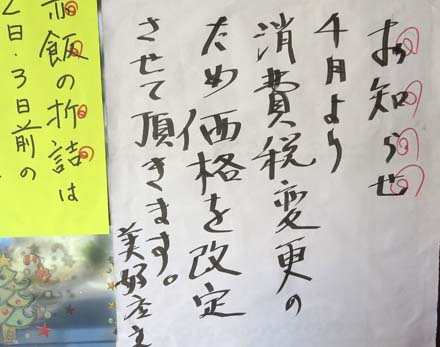 お知らせ
4月より
消費税変更の
ため価格を改定
させて頂きます。
美好屋主
赤飯の折詰は
2日・3日前の